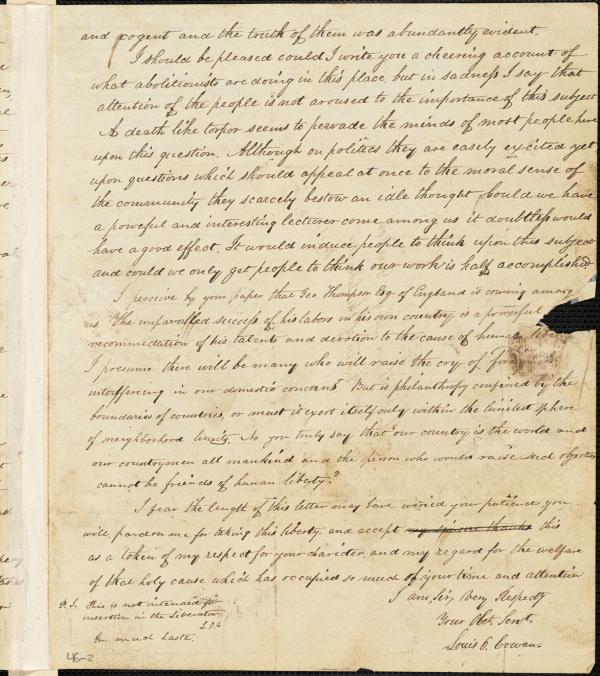 and cogent and the truth of them was abundantly evident.
I should be pleased could I write you a cheering account of
what abolitionists are doing in this place, but in sadness I say that
attention of the people is not aroused to the importance of this subject
A death like torpor seems to pervade the minds of most people here
upon this question. Although on politics they are easily excited yet
upon questions which should appeal at once to the moral sense of
the community they scarcely bestow an idle thought. Could we have
a powerful and interesting lecturer come among us it doubtless would
have a good effect. It would induce people to think upon this subject
and could we only get people to think our work is half accomplished
I perceive by your paper that Geo. Thompson Esq. of England is coming among
us. The unparalled success of his labors in his own country is a powerful
recommendation of his talents and devotion to the cause of human
I presume there will be many who will raise the cry of
interfering in our domestic concerns" But is philanthropy confined by the
boundaries of countries, or must it exert itself only within the limited sphere
of neighborhood limits. As you truly say that "our country is the world and
our countrymen all mankind and the person who would raise such objections
cannot be friends of human liberty."
I fear the length of this letter may have weried your patience you
will pardon me for taking this liberty and accept my sincere thanks this
as a token of my respect for your charicter, and my regard for the welfare
of that holy cause which has occupied so much of your time and attention
I am, Sir, Very Respecty
Your Obt. Servt.
Louis O. Cowan
P.S. This is not intended for
insertion in the Liberator
L.O.C.
In much haste.
46-2